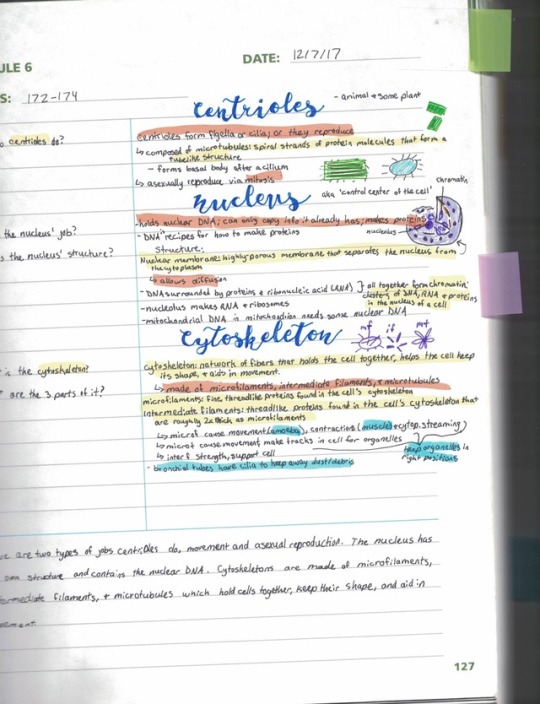 ULE 6
DATE: 12/7/17
S: 172-174
centrioles
- animal + some plant
centrioles do?
centrioles form flgella or cilia, or they reproduce
↳ composed of microtubules: spiral strands of protein molecules that form a
tubelike structure
- forms basal body after acilium
↳ asexually reproduce via mitosis
nucleus
aka 'control center of the cell'
chromatin
the nucleus' job?
- holds nuclear DNA; can only copy info it already has; makes proteins
- DNA "recipes for how to make proteins
nucleolus
s the nucleus' structure?
Structure:
Nuclear membrane: highly-porous membrane that separates the nucleus from
the cytoplasm
↳ allows diffusion
- DNA surrounded by proteins & ribonucleic acid (RNA)
} all together form 'chromatin'
clusters of DNA, RNA + proteins
in the nucleus of a cell
- nucleolus makes RNA + ribosomes
- mitochondrial DNA in mitochodion needs some nuclear DNA
cytoskeleton
mf if mt
is the cytoskeleton?
cytoskeleton: network of fibers that holds the cell together, helps the cell keep
its shape, + aids in movement.
are the 3 parts of it?
↳ made of microfilaments, intermediate filaments, + microtubules
microfilaments: fine, threadlike proteins found in the cell's cytoskeleton
intermediate filaments: threadlike proteins found in the cell's cytoskeleton that
are roughly 2x thick as microfilaments
↳ microf cause movement (amoeba), contractions (muscle) + cytop. streaming
↳ microt cause movement, make tracks in cell for organelles
↳ inter f strength, support cell
keep organelles in
right positions
- bronchial tubes have cilia to keep away dust/debris
are two types of jobs centrioles do, movement and asexual reproduction. The nucleus has
own structure and contains the nuclear DNA. Cytoskeletons are made of microfilaments,
filaments, + microtubules which hold cells together, keep their shape, and aid in
127